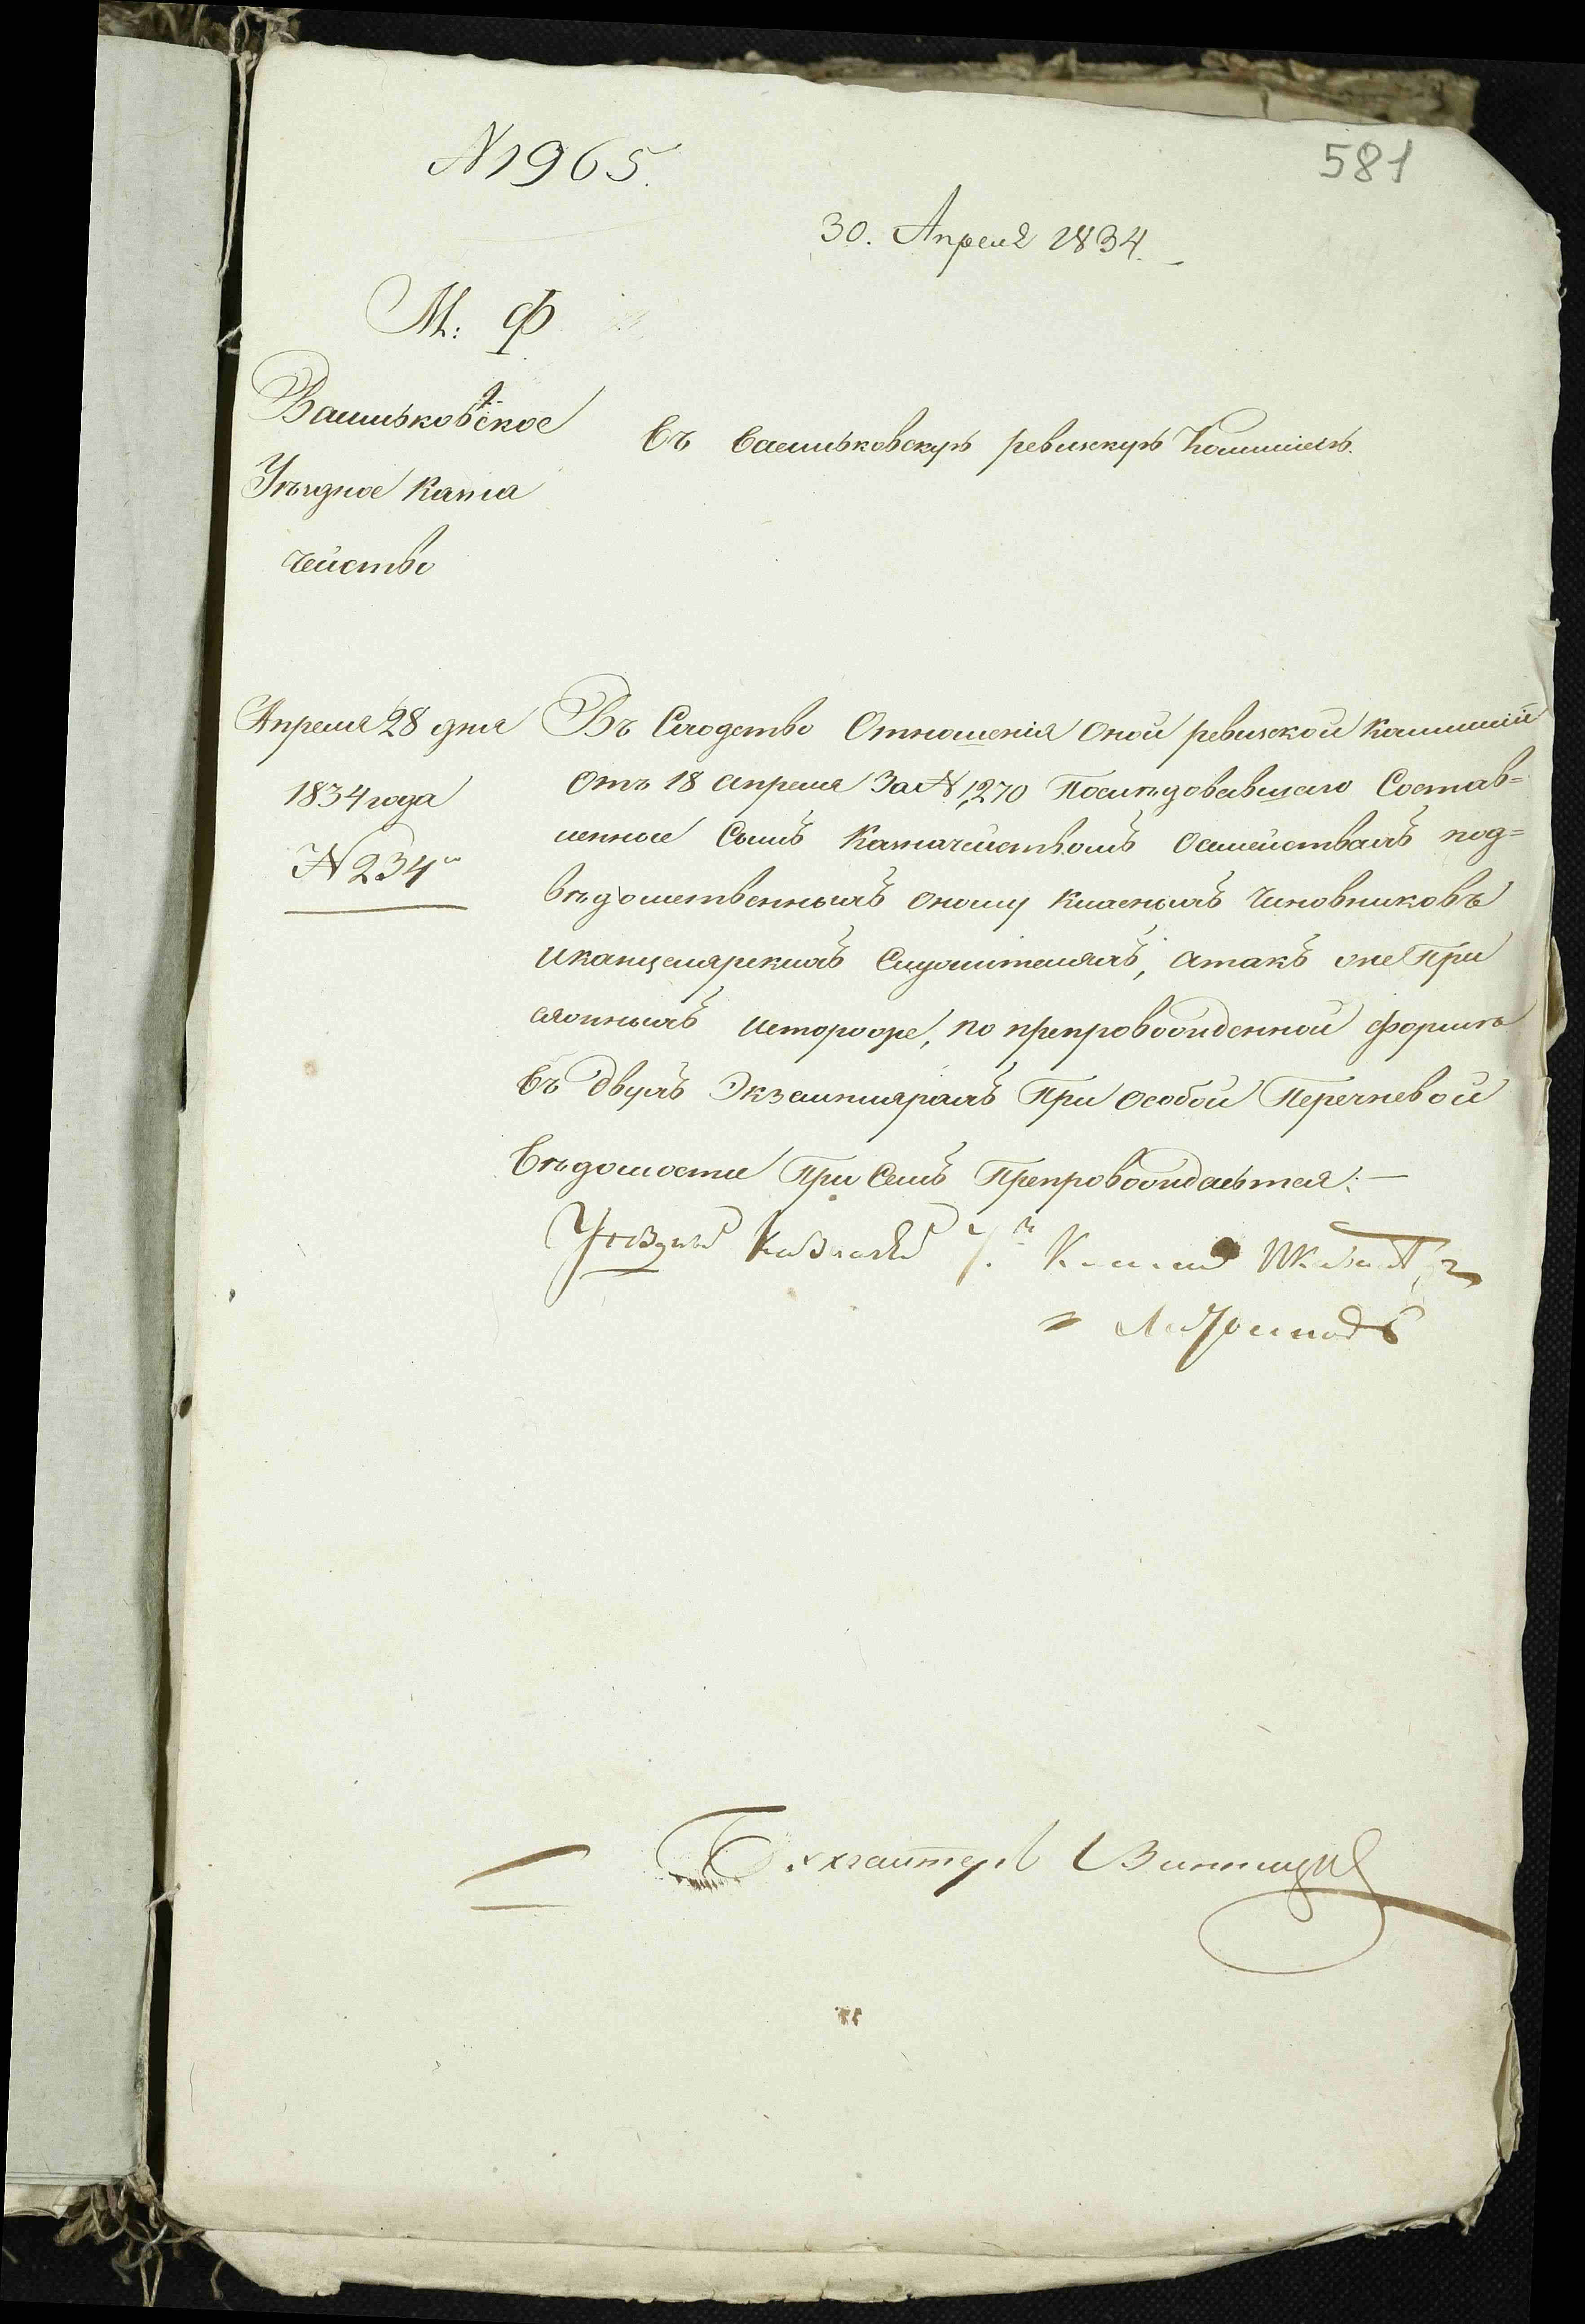 N 1965.
581
30. Апреля 1834.
М: Ф
Васильковское
Уѣздное Казна
чейство
въ Васильковскую ревизкую Коммисію.
Апреля 28 дня
1834 года
N 234
Въ Слѣдство Отношенія оной ревизской коммиссіи
отъ 18 апреля За N 1270 Послѣдовавшаго Состав=
ленные Симъ Казначействомъ Осемействахъ под=
вѣдомственныхъ оному класныхъ Чиновниковъ
и канцелярскихъ Служителяхъ, а такъ же При
сяжныхъ и сторожѣ, по препровожденной формѣ
въ двухъ Экземплярахъ При особой Перечневой
вѣдомости При Семъ Препровождаются:—
Уѣздный Казначей
Бухгалтеръ